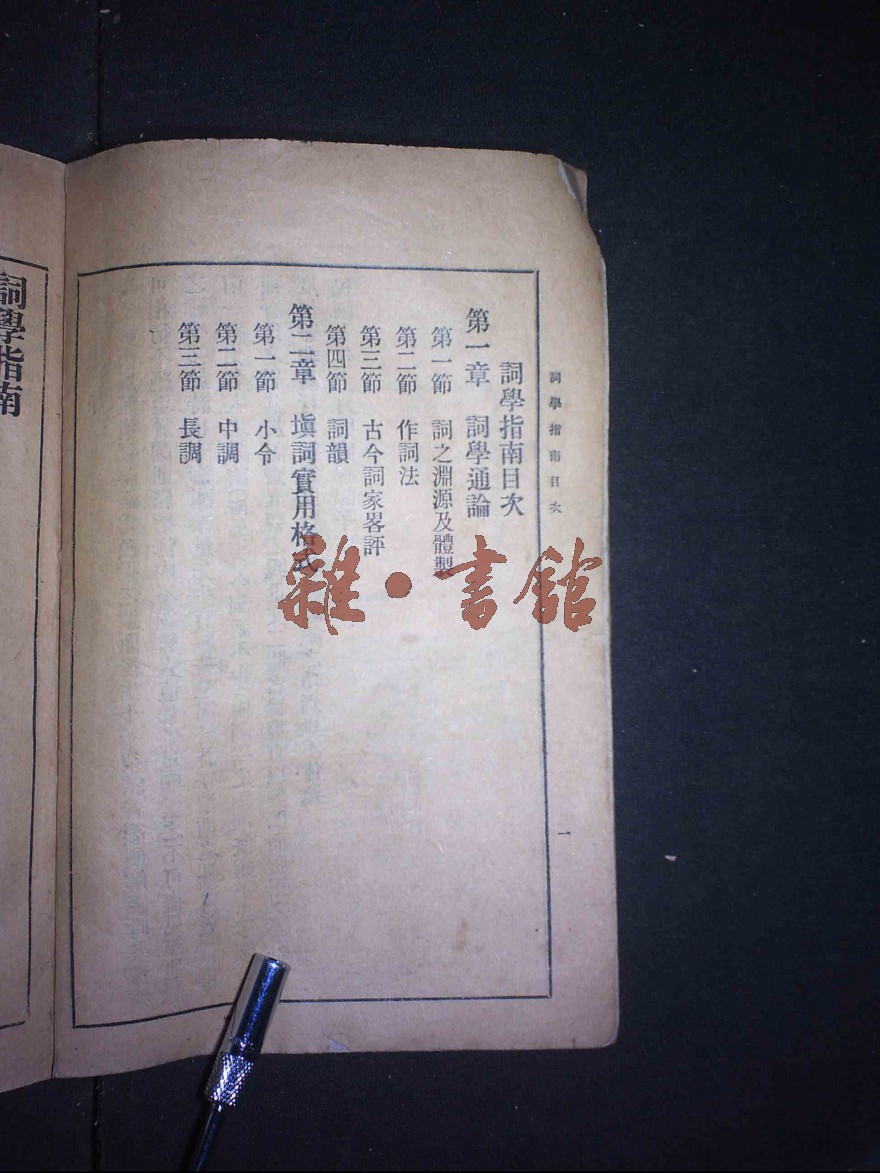 詞學指南目次
一
詞學指南目次
第一章　詞學通論
第一節　詞之淵源及體製
第二節　作詞法
第三節　古今詞家畧評
第四節　詞韻
第二章　塡詞實用格式
第一節　小令
第二節　中調
第三節　長調
詞學指南
雜·書館